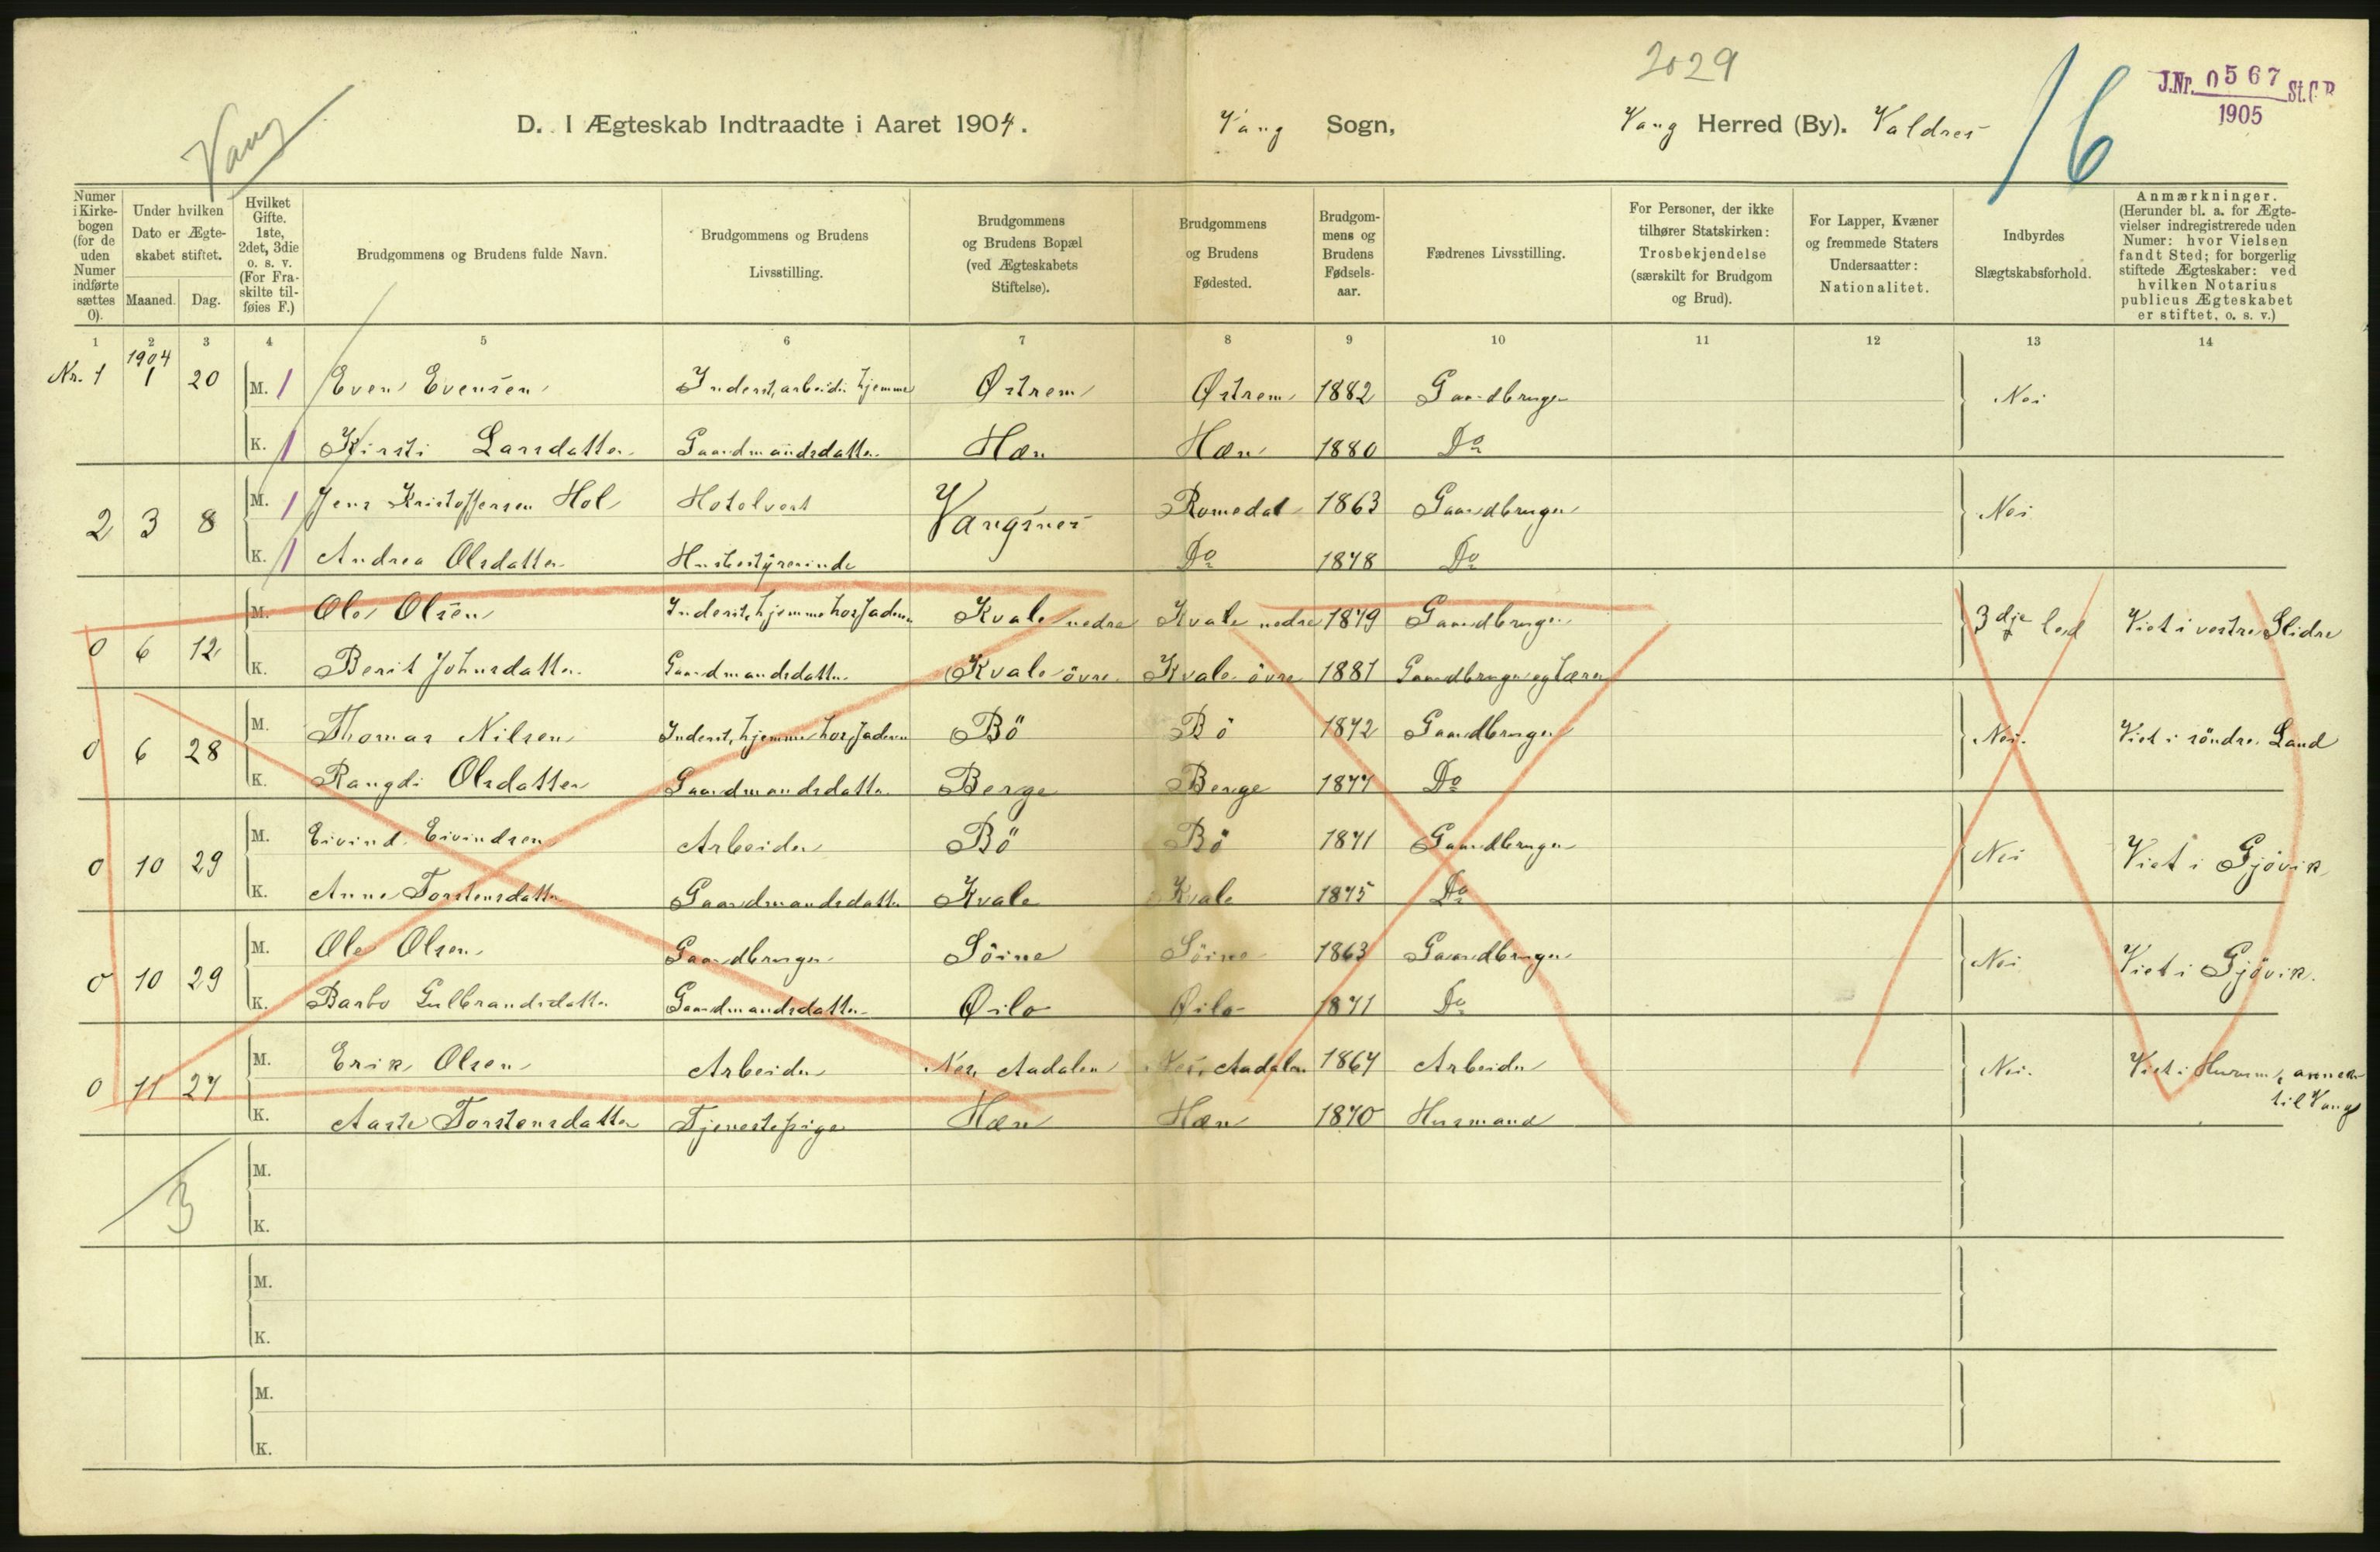 2029
J.Nr. 0567 St.C.B.
1905
16
Vang
D. I Ægteskab Indtraadte i Aaret 1904. Vang Sogn, Vang Herred (By). Valdres
Numer i Kirkebogen (for de uden Numer indførte sættes 0).
Under hvilken Dato er Ægteskabet stiftet.
Maaned. Dag.
Hvilket Gifte. 1ste, 2det, 3die o. s. v. (For Fraskilte tilføies F.)
Brudgommens og Brudens fulde Navn.
Brudgommens og Brudens Livsstilling.
Brudgommens og Brudens Bopæl (ved Ægteskabets Stiftelse).
Brudgommens og Brudens Fødested.
Brudgommens og Brudens Fødselsaar.
Fædrenes Livsstilling.
For Personer, der ikke tilhører Statskirken: Trosbekjendelse (særskilt for Brudgom og Brud).
For Lapper, Kvæner og fremmede Staters Undersaatter: Nationalitet.
Indbyrdes Slægtskabsforhold.
Anmærkninger. (Herunder bl. a. for Ægtevielser indregistrerede uden Numer: hvor Vielsen fandt Sted; for borgerlig stiftede Ægteskaber: ved hvilken Notarius publicus Ægteskabet er stiftet, o. s. v.)
1 2 3 4 5 6 7 8 9 10 11 12 13 14
1904
Nr. 1 1 20 M. 1 Even Evensen Inderst, arbeider hjemme Østrem Østrem 1882 Gaardbruger Nei
K. 1 Kirsti Larsdatter Gaardmandsdatter Hæn Hæn 1880 Do
2 3 8 M. 1 Jens Kristoffersen Hol Hotelvert Vangsnes Romedal 1863 Gaardbruger Nei
K. 1 Andrea Olsdatter Husbestyrerinde Do 1878 Do
0 6 12 M. Ole Olsen Inderst, hjemme hos faderen Kvale nedre Kvale nedre 1879 Gaardbruger 3dje led Viet i vestre Slidre
K. Berit Johnsdatter Gaardmandsdatter Kvale övre Kvale övre 1881 Gaardbruger og lærer
0 6 28 M. Thomas Nilsen Inderst, hjemme hos faderen Bö Bö 1872 Gaardbruger Nei. Viet i söndre Land
K. Rangdi Olsdatter Gaardmandsdatter Berge Berge 1877 Do
0 10 29 M. Eivind Eivindsen Arbeider Bö Bö 1871 Gaardbruger Nei Viet i Gjövik
K. Anne Torstensdatter Gaardmandsdatter Kvale Kvale 1875 Do
0 10 29 M. Ole Olsen Gaardbruger Söine Söine 1863 Gaardbruger Nei Viet i Gjövik.
K. Barbo Gulbrandsdatter Gaardmandsdatter Øilo Øilo 1871 Do
0 11 27 M. Erik Olsen Arbeider Nes, Aadalen Nes, Aadalen 1867 Arbeider Nei. Viet i Hurum, annex
til Vang
K. Aaste Torstensdatter Tjenestepige Hæn Hæn 1870 Husmand
3
M.
K.
M.
K.
M.
K.